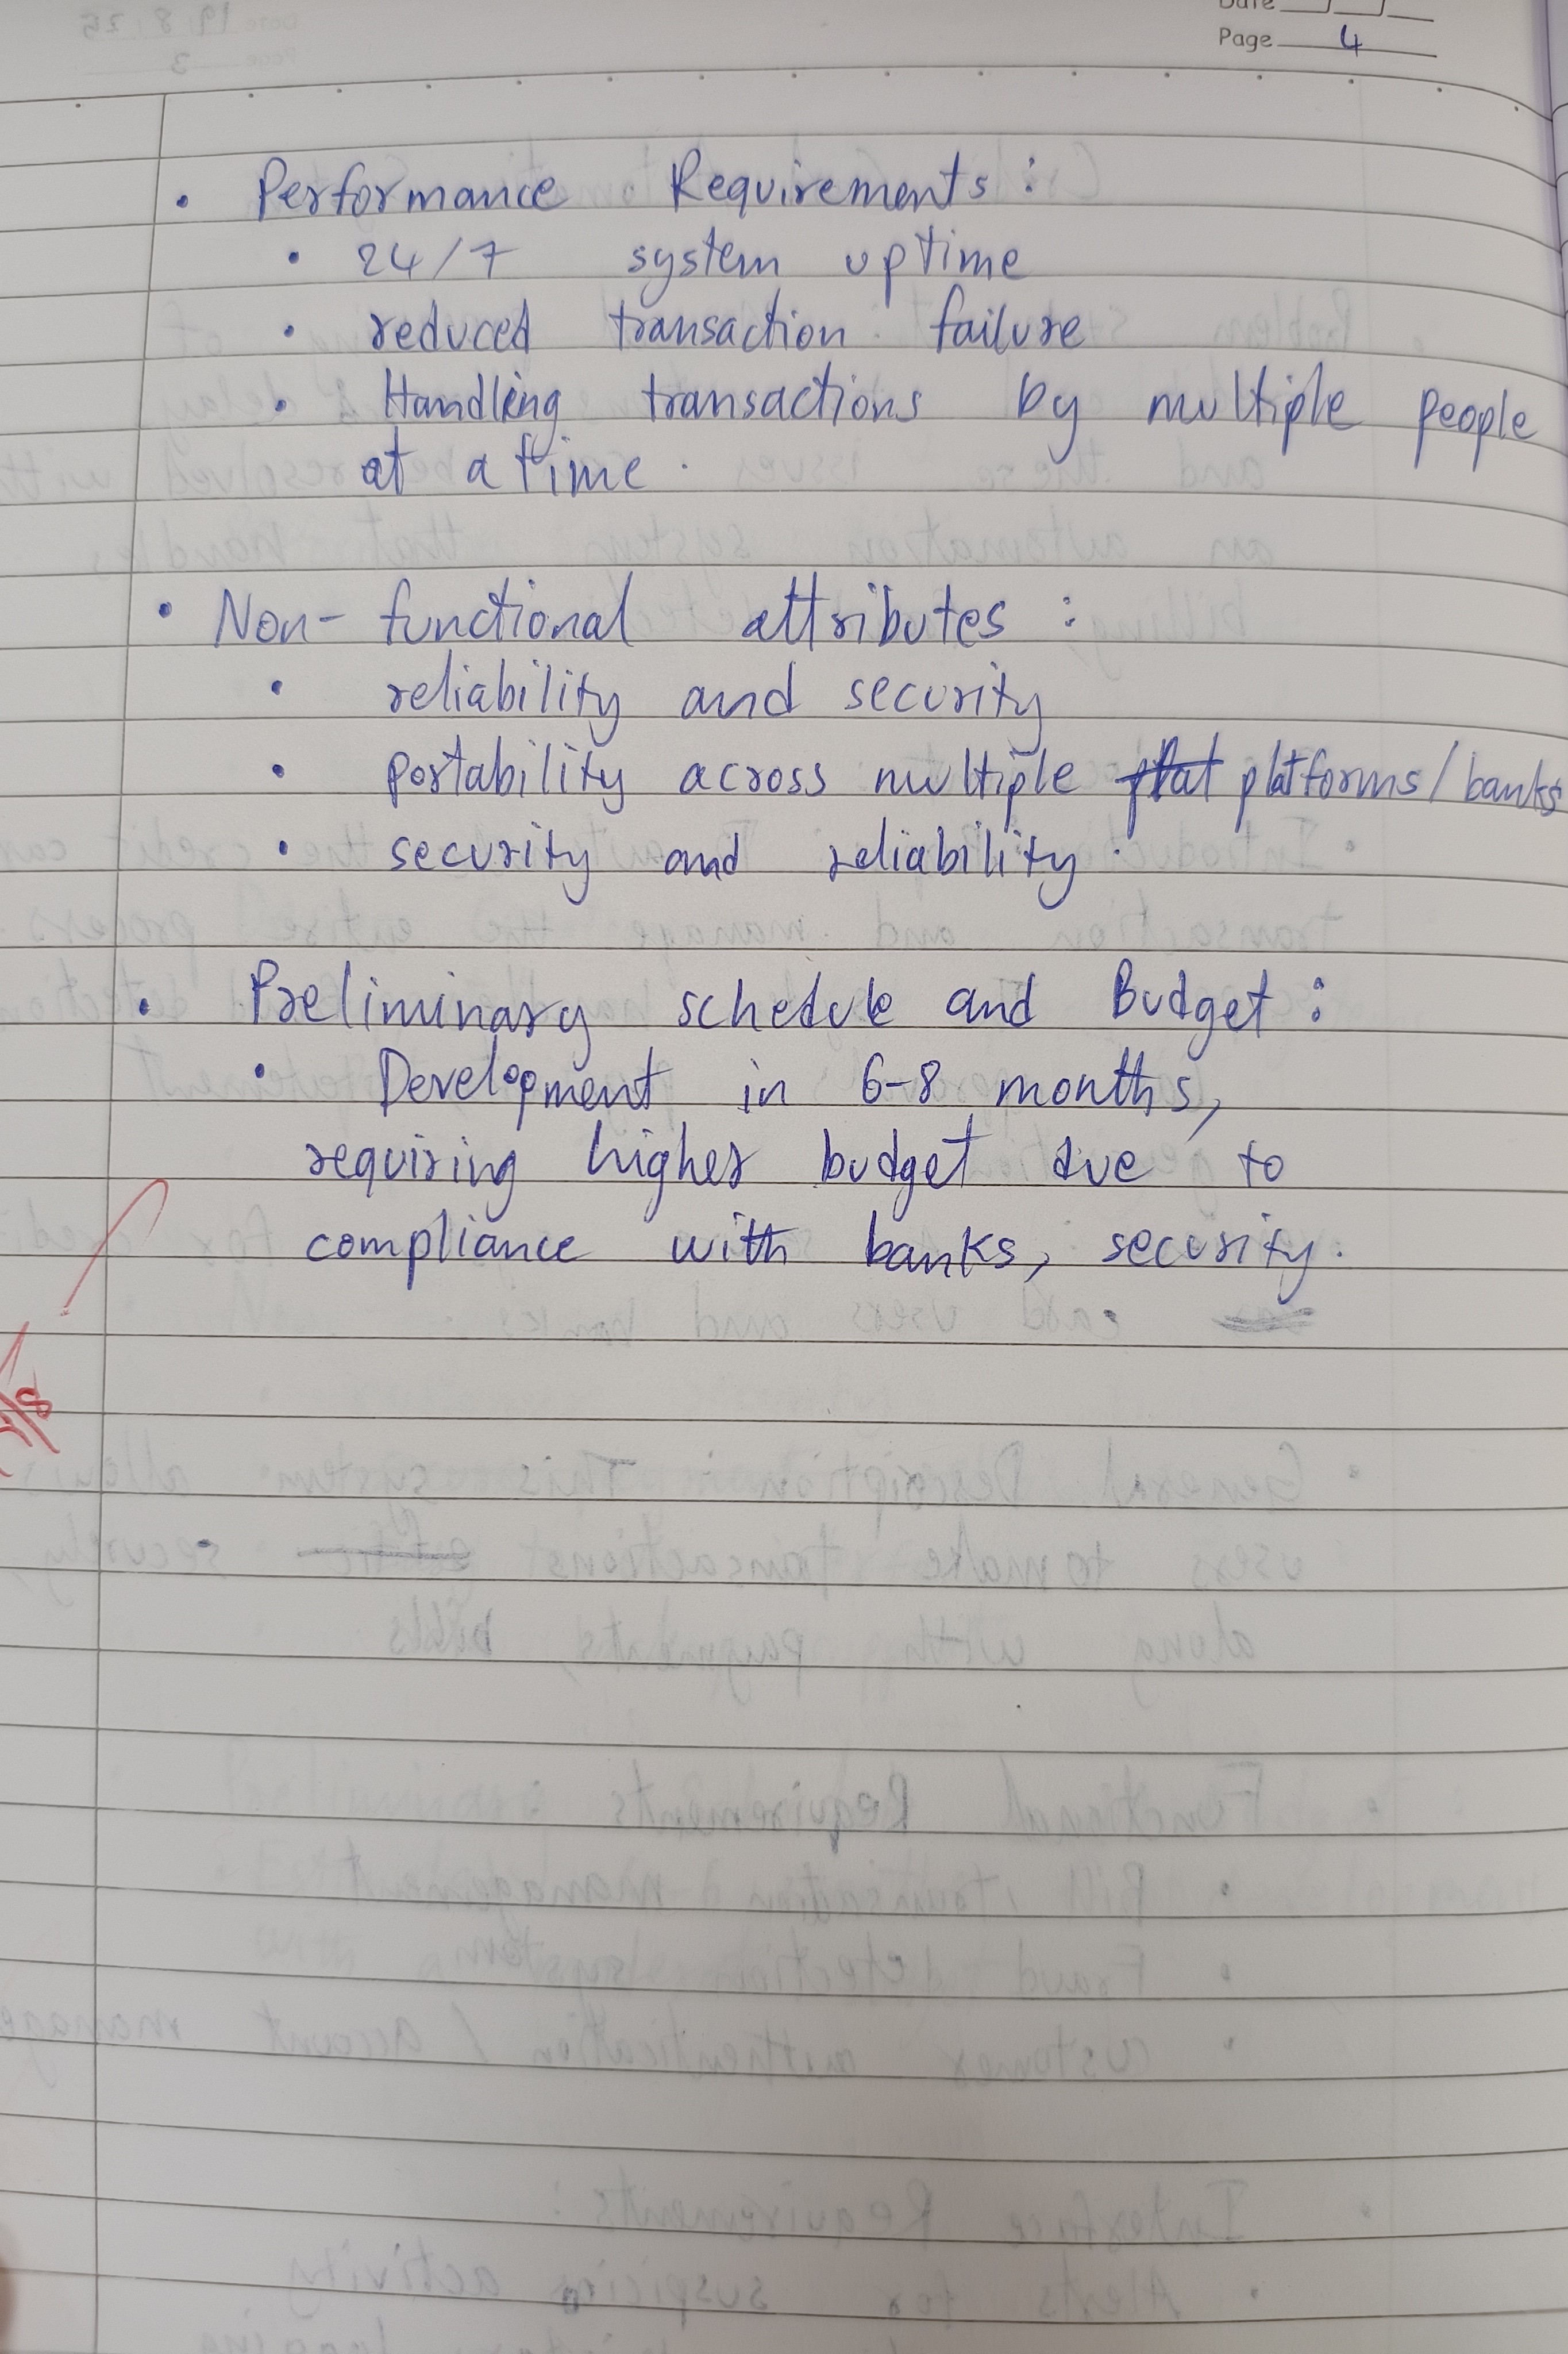 Date
Page 4
• Performance Requirements:
• 24/7 system uptime
• reduced transaction failure
• Handling transactions by multiple people
at a time.
• Non-functional attributes:
• reliability and security
• portability across multiple plat platforms/banks
• security and reliability.
• Preliminary schedule and Budget:
• Development in 6-8 months,
requiring higher budget due to
compliance with banks, security.